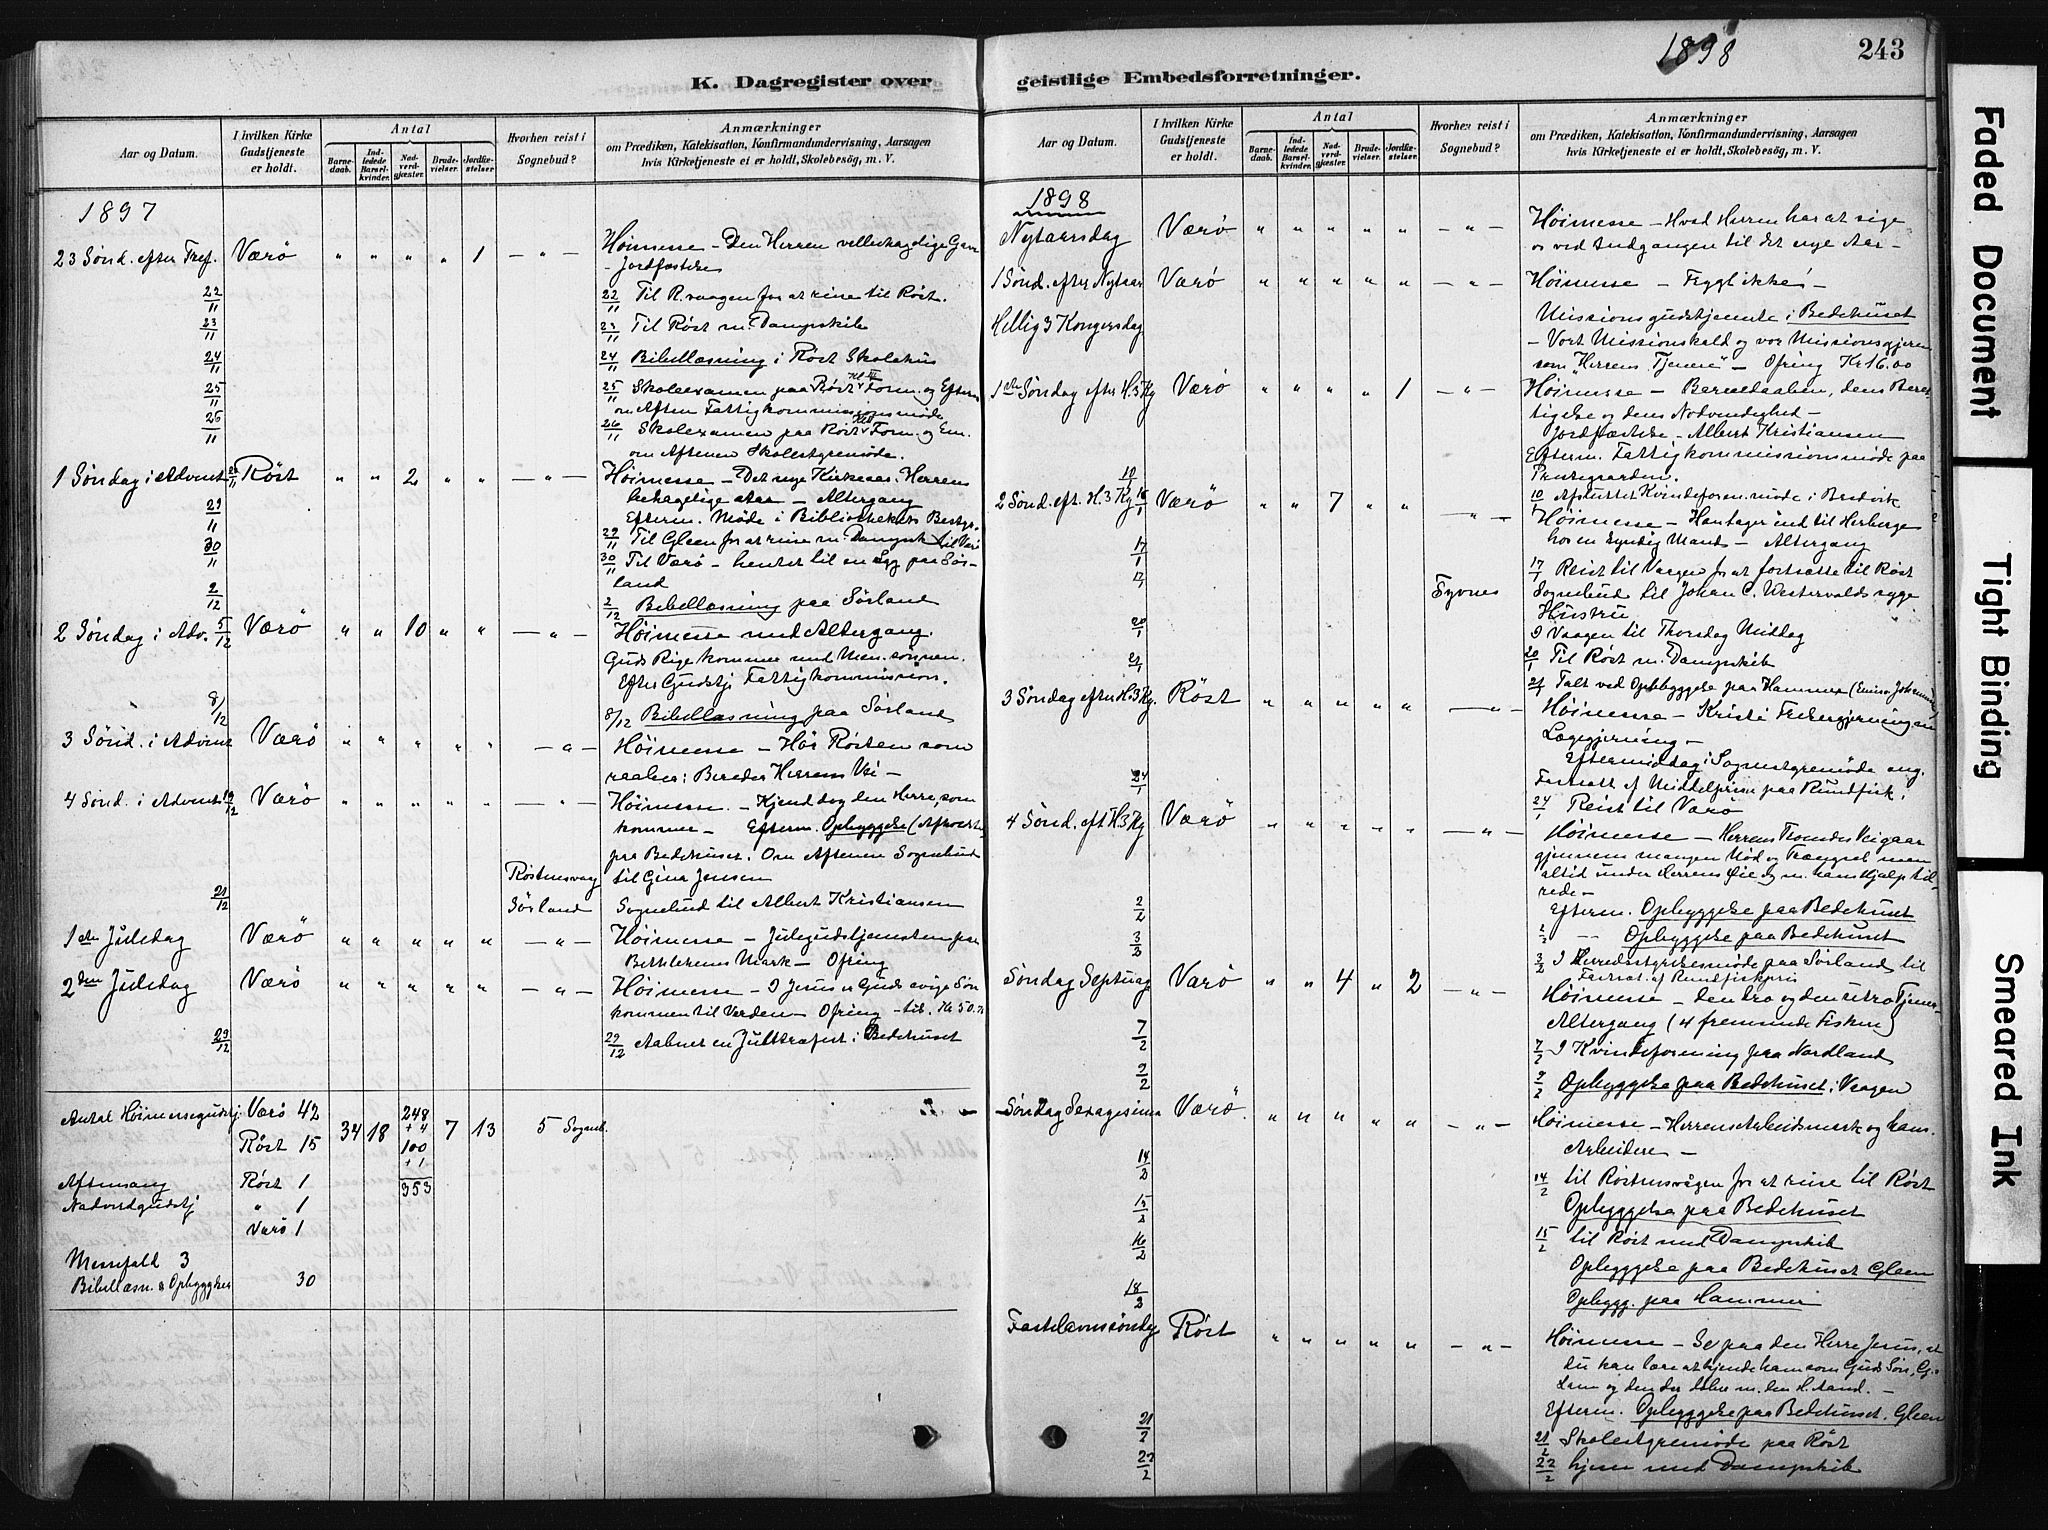 K. Dagregister over
Aar og Datum.
I hvilken Kirke Gudstjeneste er holdt.
Antal
Barne-daab.
Ind-ledede Barsel-kvinder.
Nad-verd-gjæster.
Brude-vielser.
Jordfæ-stelser
Hvorhen reist i Sognebud?
Anmærkninger
om Prædiken, Katekisation, Konfirmandundervisning, Aarsagen
hvis Kirketjeneste ei er holdt, Skolebesög, m. V.
1897
23 Sønd. efter Tref. Værö " " " " 1 — " — Höimesse – Den Herren velbehagelige Gave
– Jordfæstelse
22/11 22/11 Til R.vaagen for at reise til Röst.
23/11 23/11 Til Röst m. Dampskib
24/11 24/11 Bibellæsning i Röst Skolehus
25/11 25/11 Skoleexamen paa Röst Form. og Efterm
om Aften Fattigkommissionsmöde
26/11 26/11 Skoleexamen paa Röst Form. og Em.
om Aftenen Skolestyremöde.
1 Söndag i Advent Röst " " 2 " " — " — Höimesse – Det nye Kirkeaar. Herrens
behagelige Aar – Altergang
Efterm. Möde i Bibliothekets Bestyr.
29/11 29/11 Til Gleen for at reise m. Dampsk. til Værö
30/11 30/11 Til Værö – hentet til en Syg paa Sör-
land
2/12 2/12 Bibellæsning paa Sörland
2 Söndag i Adv. 5/12 Værö " " 10 " " — " — Höimesse med Altergang.
Guds Rige kommer med Men. sönnen.
Efter Gudstj. Fattigkommission.
8/12 8/12 Bibellæsning paa Sörland
3 Sönd. i Advent Værö " " " " " — " — Höimesse – Hör Rösten som
raaber: Bereder Herrens Vei –
4 Sönd. i Advent 19/12 Værö " " " " " — " — Höimesse. – Kjend dog den Herre, som
kommer – Efterm. Opbyggelse
paa Bedehuset. Om Aftenen Sognebud
Röstnesvaag til Gina Jensen
21/12 Sörland Sognebud til Albert Kristiansen
1ste Juledag Værö " " " " " — " — Höimesse – Julegudstjenesten paa
Bethlehems Mark – Ofring
2den Juledag Værö " " " " " — " — Höimesse – I Jesus er Guds evige Sön
kommen til Verden – Ofring
29/12 29/12 Aabnet en Juletræfest i Bedehuset
Antal Höimessegudstj. Værö 42 34 18 248 + 4 7 13 5 Sogneb.
Röst 15 100 + 1
Aftensang Röst 1 353
Nadverdgudstj " 1
Værö 1
Messefald 3
Bibellæsn. & Opbyggelser 30
geistlige Embedsforretninger.
1898
243
Aar og Datum.
I hvilken Kirke Gudstjeneste er holdt.
Antal
Barne-daab.
Ind-ledede Barsel-kvinder.
Nad-verd-gjæster.
Brude-vielser.
Jordfæ-stelser.
Hvorhen reist i Sognebud?
Anmærkninger
om Prædiken, Katekisation, Konfirmandundervisning, Aarsagen
hvis Kirketjeneste ei er holdt, Skolebesög, m. V.
1898
Nytaarsdag Værö " " " " " — " — Höimesse – Hvad Herren har at sige
os ved Indgangen til det nye Aar –
1 Sönd. efter Nytaar Værö " " " " " — " — Höimesse – Frygt ikke! –
Hellig 3 Kongersdag Missionsgudstjeneste i Bedehuset
– Vort Missionskald og vor Missionsgjerning
som "Herrens Tjener" – Ofring Kr 16.00
1ste Söndag efter H. 3 Kg Værö " " " " 1 — " — Höimesse – Barnedaaben, dens Beret-
tigelse og dens Nödvendighed –
Jordfæstelse – Albert Kristiansen
Efterm. Fattigkommissionsmöde paa
Præstegaarden.
10/1 10/1 Afsluttet Kvindeforen. möde i Bredvik
2 Sönd. eft. H. 3 Kg 16/1 Værö " " 7 " " — " — Höimesse – Han tager ind til Herberge
hos en syndig Mand – Altergang
17/1 17/1 Reist til Vaagen for at fortsætte til Röst
17/1 Tyvnes Sognebud til Johan C. Westervolds syge
Hustru
I Vaagen til Thorsdag Middag
20/1 20/1 Til Röst m. Dampskib
21/1 21/1 Talt ved Opbyggelse paa Hammer
3 Söndag efter H. 3 Kg. Röst " " " " " — " — Höimesse – Kristi Frelsergjerning en
Lægegjerning –
Eftermiddag i Sognestyremöde ang.
Fastsatt. af Middelpris paa Rundfisk.
24/1 24/1 Reist til Værö
4 Sönd. eft H 3 Kg Værö " " " " " — " — Höimesse – Herrens Troendes Vei gaar
gjennem mangen Nöd og Trængsel men
altid under Herrens Öie og m. hans Hjælp til-
rede –
Efterm. Opbyggelse paa Bedehuset
2/2 2/2 Opbyggelse paa Bedehuset
3/2 3/2 I Herredsstyrelsesmöde paa Sörland til
Fastsat. af Rundfiskpris
Söndag Septuag Værö " " 4 " 2 — " — Höimesse – Den tro og den utro Tjener –
Altergang (4 fremmede Fiskere)
7/2 7/2 I Kvindeforening paa Nordland
9/2 9/2 Opbyggelse paa Bedehuset i Vaagen
Söndag Sexagesima Værö. " " " " " — " — Höimesse – Herrens Arbeidsmark og hans
Arbeidere –
14/2 14/2 til Röstnesvågen for at reise til Röst
Opbyggelse paa Bedehuset
15/2 15/2 til Röst med Dampskib
16/2 Opbyggelse paa Bedehuset Gleen
18/2 Opbygg. paa Hammer
Fastelavnssöndag Röst " " " " " — " — Höimesse – Se paa den Herre Jesus, at
du kan lære at kjende ham som Guds Sön, G.s
Lam og den der döber m. den H. Aand. –
Efterm. Opbyggelse paa Bedehuset. Gleen
21/2 21/2 Skolestyremöde paa Röst
22/2 22/2 hjem med Dampskib
Faded Document
Tight Binding
Smeared Ink